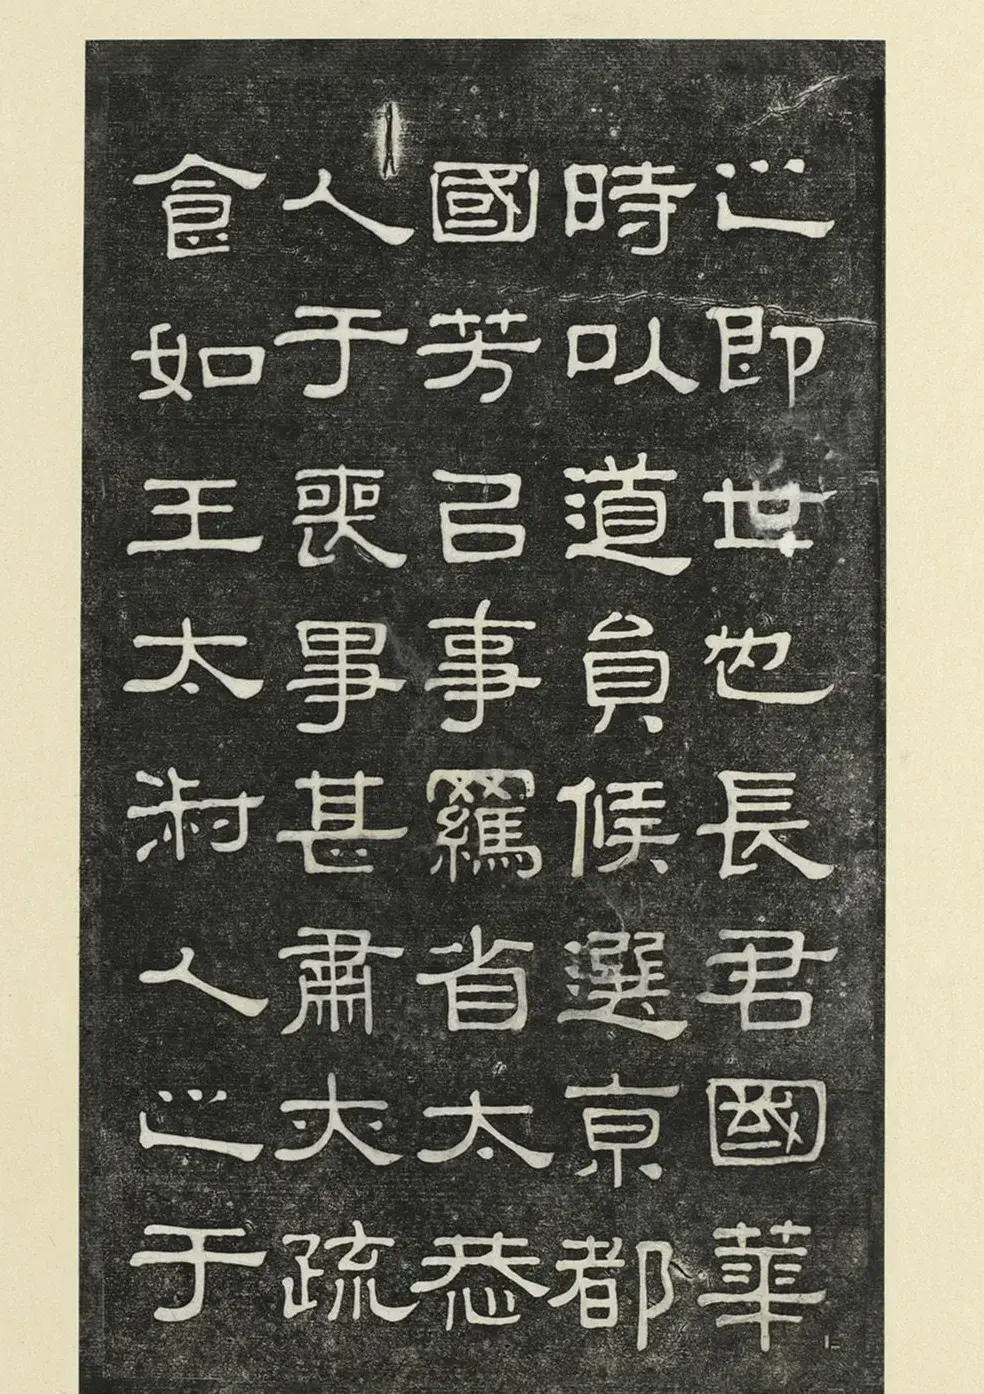 之即世也長君國華
時以道員候選京都
國芳㠯事羈省太恭
人于喪事甚肅亦疏
食如王太淑人之于